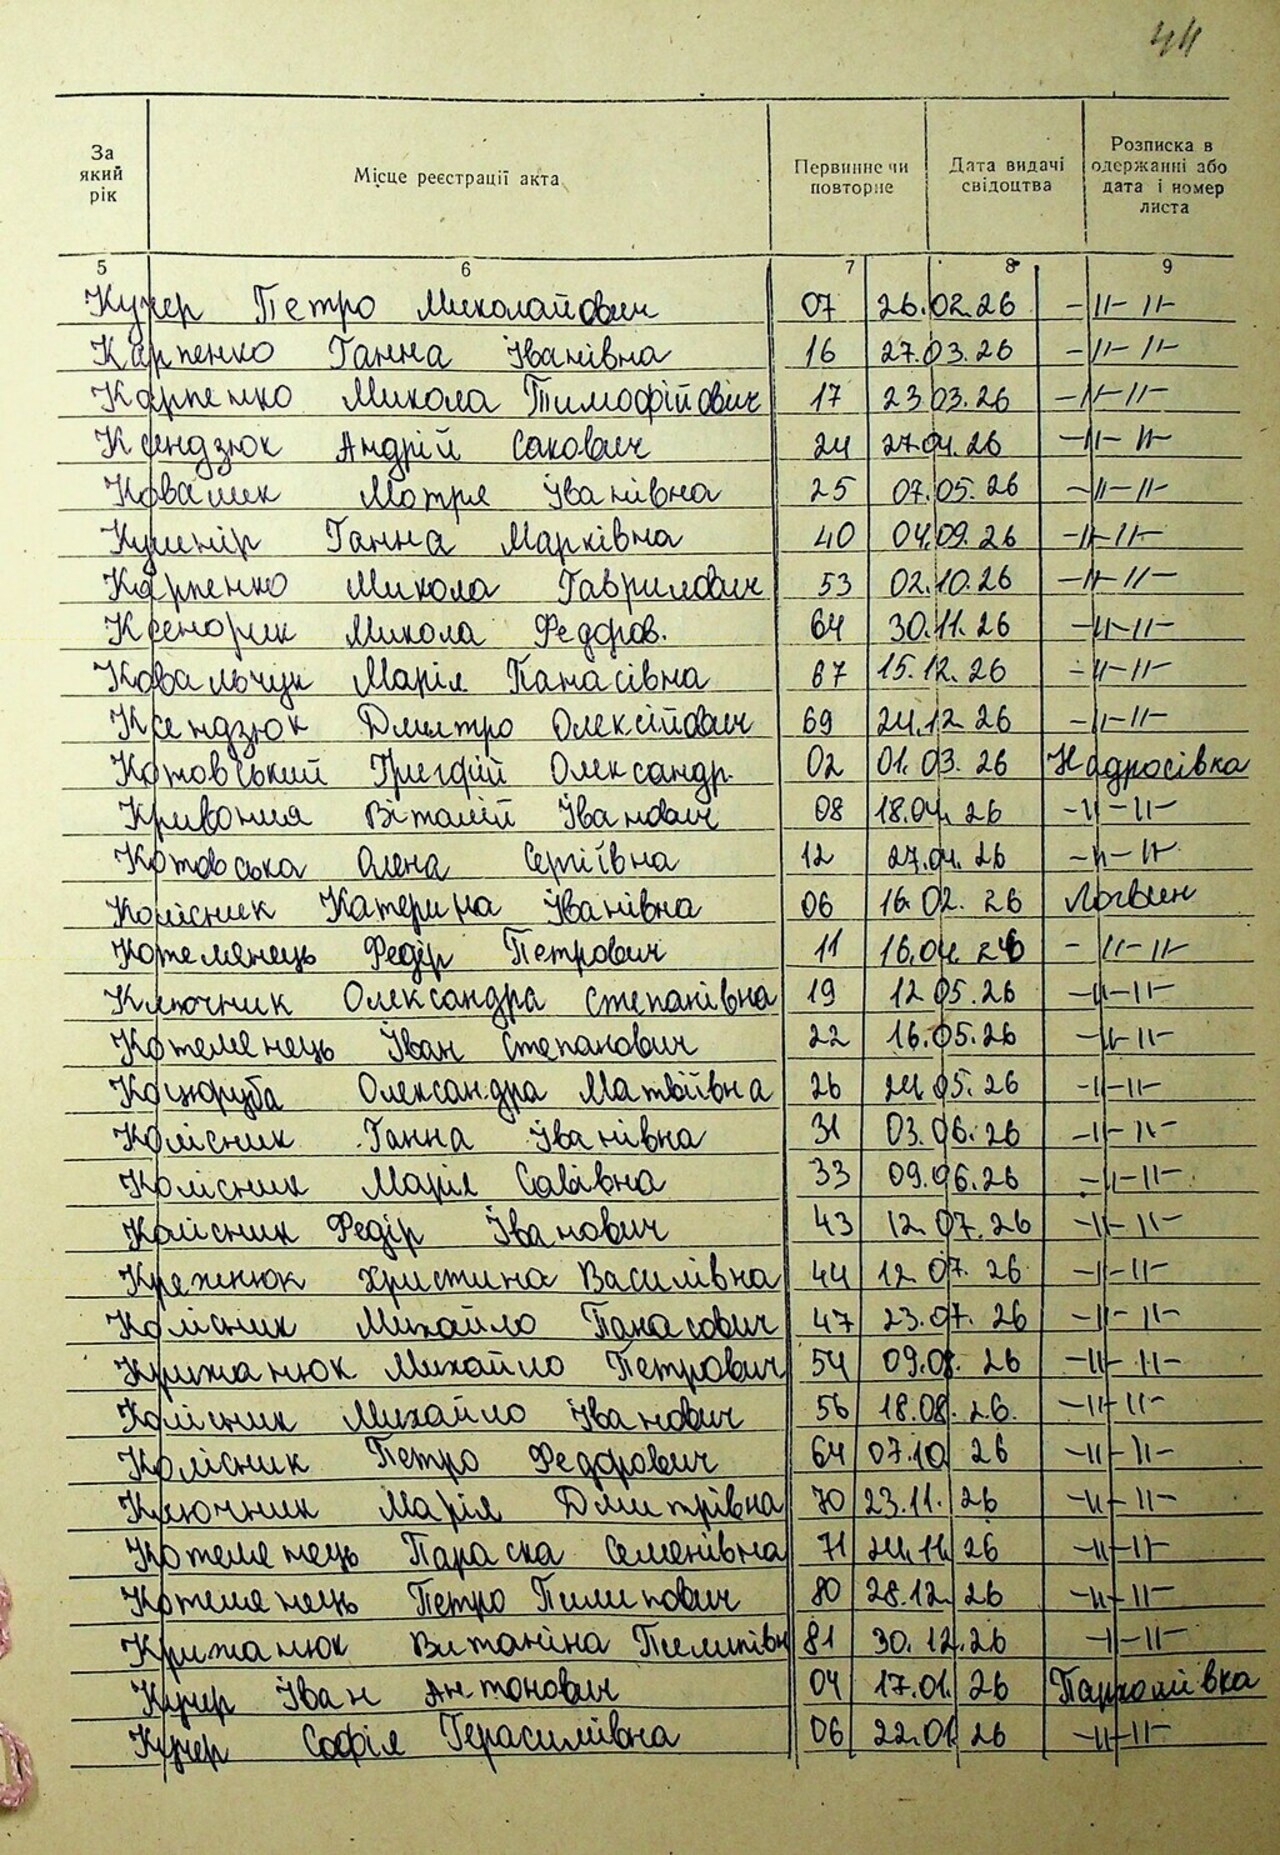 44
За який рік
Місце реєстрації акта
Первинне чи повторне
Дата видачі свідоцтва
Розписка в одержанні або дата і номер листа
5 6 7 8 9
Кучер Петро Миколайович 07 26.02.26 -11-11-
Карпенко Ганна Іванівна 16 27.03.26 -11-11-
Карпенко Микола Тимофійович 17 23 03.26 -11-11-
Ксендзюк Андрій Сакович 24 27.04.26 -11-11-
Мотря Іванівна 25 07.05.26 -11-11-
Кушнір Ганна Марківна 40 04.09.26 -11-11-
Карпенко Микола Гаврилович 53 02.10.26 -11-11-
Микола Федоров. 64 30.11.26 -11-11-
Ковальчук Марія Панасівна 67 15.12.26 -11-11-
Ксендзюк Дмитро Олексійович 69 24.12.26 -11-11-
Котовський Григорій Олександр. 02 01.03.26 Надросівка
Кривошия Віталій Іванович 08 18.04.26 -11-11-
Котовська Олена Сергіївна 12 27.04.26 -11-11-
Колісник Катерина Іванівна 06 16.02.26 Логвин
Котелянець Федір Петрович 11 16.04.26 -11-11-
Ключник Олександра Степанівна 19 12 05.26 -11-11-
Котеленець Іван Степанович 22 16.05.26 -11-11-
Коцюруба Олександра Матвіївна 26 24.05.26 -11-11-
Колісник Ганна Іванівна 31 03.06.26 -11-11-
Колісник Марія Савівна 33 09.06.26 -11-11-
Колісник Федір Іванович 43 12.07.26 -11-11-
Христина Василівна 44 12 07.26 -11-11-
Колісник Михайло Панасович 47 23.07.26 -11-11-
Крижанюк Михайло Петрович 54 09.08.26 -11-11-
Колісник Михайло Іванович 56 18.08.26. -11-11-
Колісник Петро Федорович 64 07.10 26 -11-11-
Ключник Марія Дмитрівна 70 23.11.26 -11-11-
Котеленець Параска Семенівна 71 24.11.26 -11-11-
Котеленець Петро Пилипович 80 28.12.26 -11-11-
Крижанюк Пилипівн 81 30.12.26 -11-11-
Кучер Іван Антонович 04 17.01.26 Пархомівка
Кучер Софія Герасимівна 06 22.01.26 -11-11-